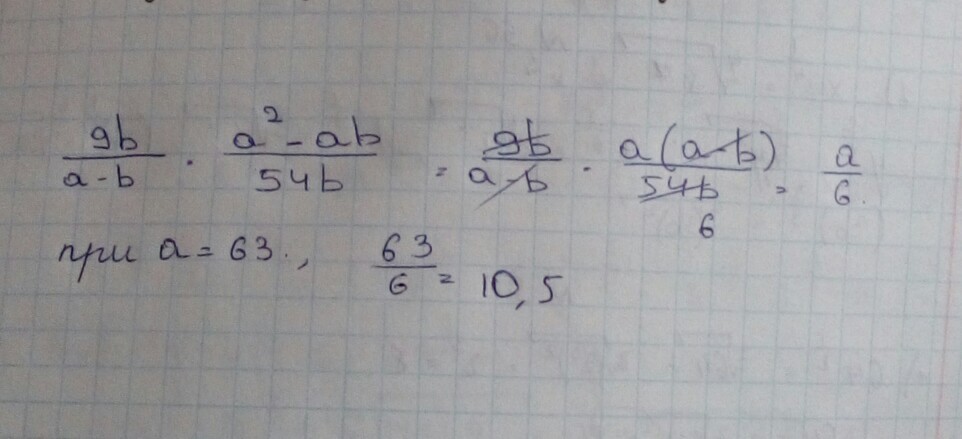 9b/(a-b) · (a²-ab)/54b = 9b/(a-b) · a(a-b)/54b = a/6.
6
при a = 63., 63/6 = 10,5